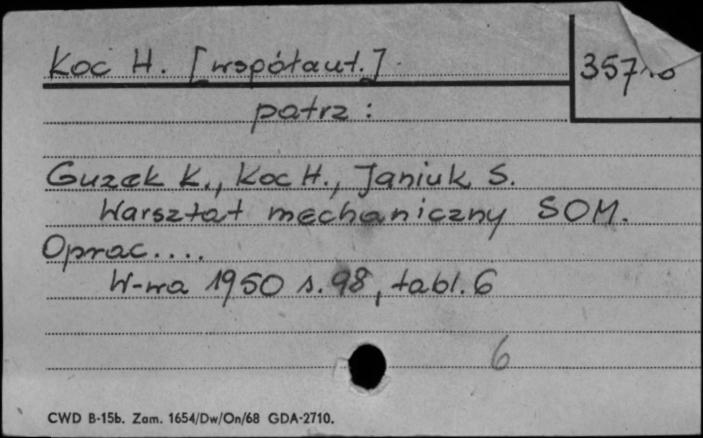 Koc H. [współaut.]
patrz:
Guzek K., Koc H., Janiuk S.
Warsztat mechaniczny SOM.
Oprac....
W-wa 1950 s. 98, tabl. 6
6
CWD B-15b. Zam. 1654/Dw/On/68 GDA-2710.